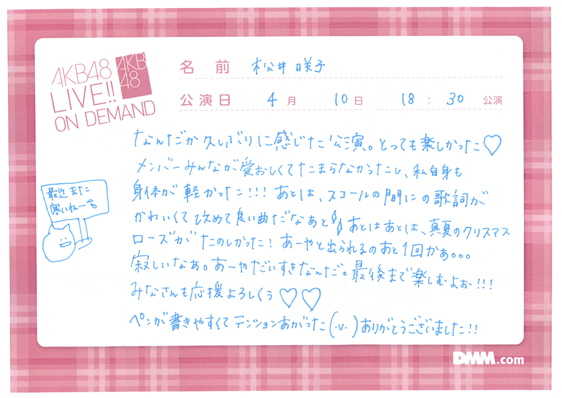 AKB48
LIVE!!
ON DEMAND
AKB
48
名 前 松井咲子
公演日 4月 10日 18:30 公演
なんだか久しぶりに感じた公演。とっても楽しかった♡
メンバーみんなが愛おしくてたまらなかったし、私自身も
身体が軽かった!!! あとは、スコールの間にの歌詞が
かわいくて改めて良い曲だなあと あとはあとは、真夏のクリスマス
ローズがたのしかった! あーやと出られるのあと1回かぁ。。。
寂しいなぁ。あーやだいすきなんだ。最後まで楽しむよぉ!!!
みなさんも応援よろしくぅ♡♡
ペンが書きやすくてテンションあがった(・v・)ありがとうございました!!
最近また
寒いねーる
DMM.com